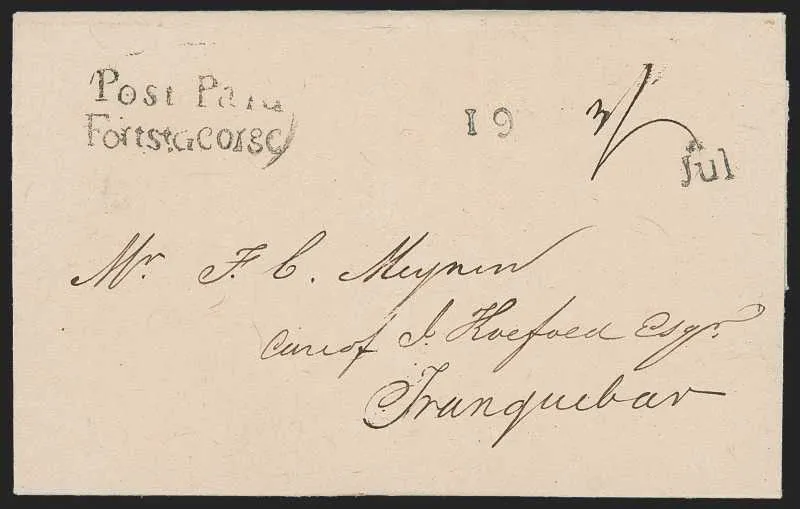 Post Paid
Fort St. George
19
3/
Jul
Mr. F. C. Meynin
care of J. Hoefoed Esqr.
Tranquebar